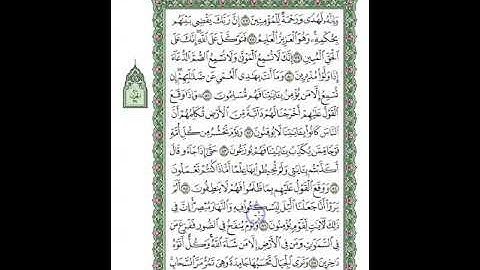 وَإِنَّهُۥ لَهُدًى وَرَحْمَةٌ لِّلْمُؤْمِنِينَ ۝ إِنَّ رَبَّكَ يَقْضِى بَيْنَهُم
بِحُكْمِهِۦ وَهُوَ ٱلْعَزِيزُ ٱلْعَلِيمُ ۝ فَتَوَكَّلْ عَلَى ٱللَّهِ إِنَّكَ عَلَى
ٱلْحَقِّ ٱلْمُبِينِ ۝ إِنَّكَ لَا تُسْمِعُ ٱلْمَوْتَىٰ وَلَا تُسْمِعُ ٱلصُّمَّ ٱلدُّعَآءَ
إِذَا وَلَّوْا۟ مُدْبِرِينَ ۝ وَمَآ أَنتَ بِهَـٰدِى ٱلْعُمْىِ عَن ضَلَـٰلَتِهِمْ إِن
تُسْمِعُ إِلَّا مَن يُؤْمِنُ بِـَٔايَـٰتِنَا فَهُم مُّسْلِمُونَ ۝ وَإِذَا وَقَعَ
ٱلْقَوْلُ عَلَيْهِمْ أَخْرَجْنَا لَهُمْ دَآبَّةً مِّنَ ٱلْأَرْضِ تُكَلِّمُهُمْ أَنَّ
ٱلنَّاسَ كَانُوا۟ بِـَٔايَـٰتِنَا لَا يُوقِنُونَ ۝ وَيَوْمَ نَحْشُرُ مِن كُلِّ أُمَّةٍ
فَوْجًا مِّمَّن يُكَذِّبُ بِـَٔايَـٰتِنَا فَهُمْ يُوزَعُونَ ۝ حَتَّىٰٓ إِذَا جَآءُو قَالَ
أَكَذَّبْتُم بِـَٔايَـٰتِى وَلَمْ تُحِيطُوا۟ بِهَا عِلْمًا أَمَّاذَا كُنتُمْ تَعْمَلُونَ
۝ وَوَقَعَ ٱلْقَوْلُ عَلَيْهِم بِمَا ظَلَمُوا۟ فَهُمْ لَا يَنطِقُونَ ۝ أَلَمْ
يَرَوْا۟ أَنَّا جَعَلْنَا ٱلَّيْلَ لِيَسْكُنُوا۟ فِيهِ وَٱلنَّهَارَ مُبْصِرًا إِنَّ فِى
ذَٰلِكَ لَـَٔايَـٰتٍ لِّقَوْمٍ يُؤْمِنُونَ ۝ وَيَوْمَ يُنفَخُ فِى ٱلصُّورِ فَفَزِعَ مَن
فِى ٱلسَّمَـٰوَٰتِ وَمَن فِى ٱلْأَرْضِ إِلَّا مَن شَآءَ ٱللَّهُ وَكُلٌّ أَتَوْهُ
دَٰخِرِينَ ۝ وَتَرَى ٱلْجِبَالَ تَحْسَبُهَا جَامِدَةً وَهِىَ تَمُرُّ مَرَّ ٱلسَّحَابِ